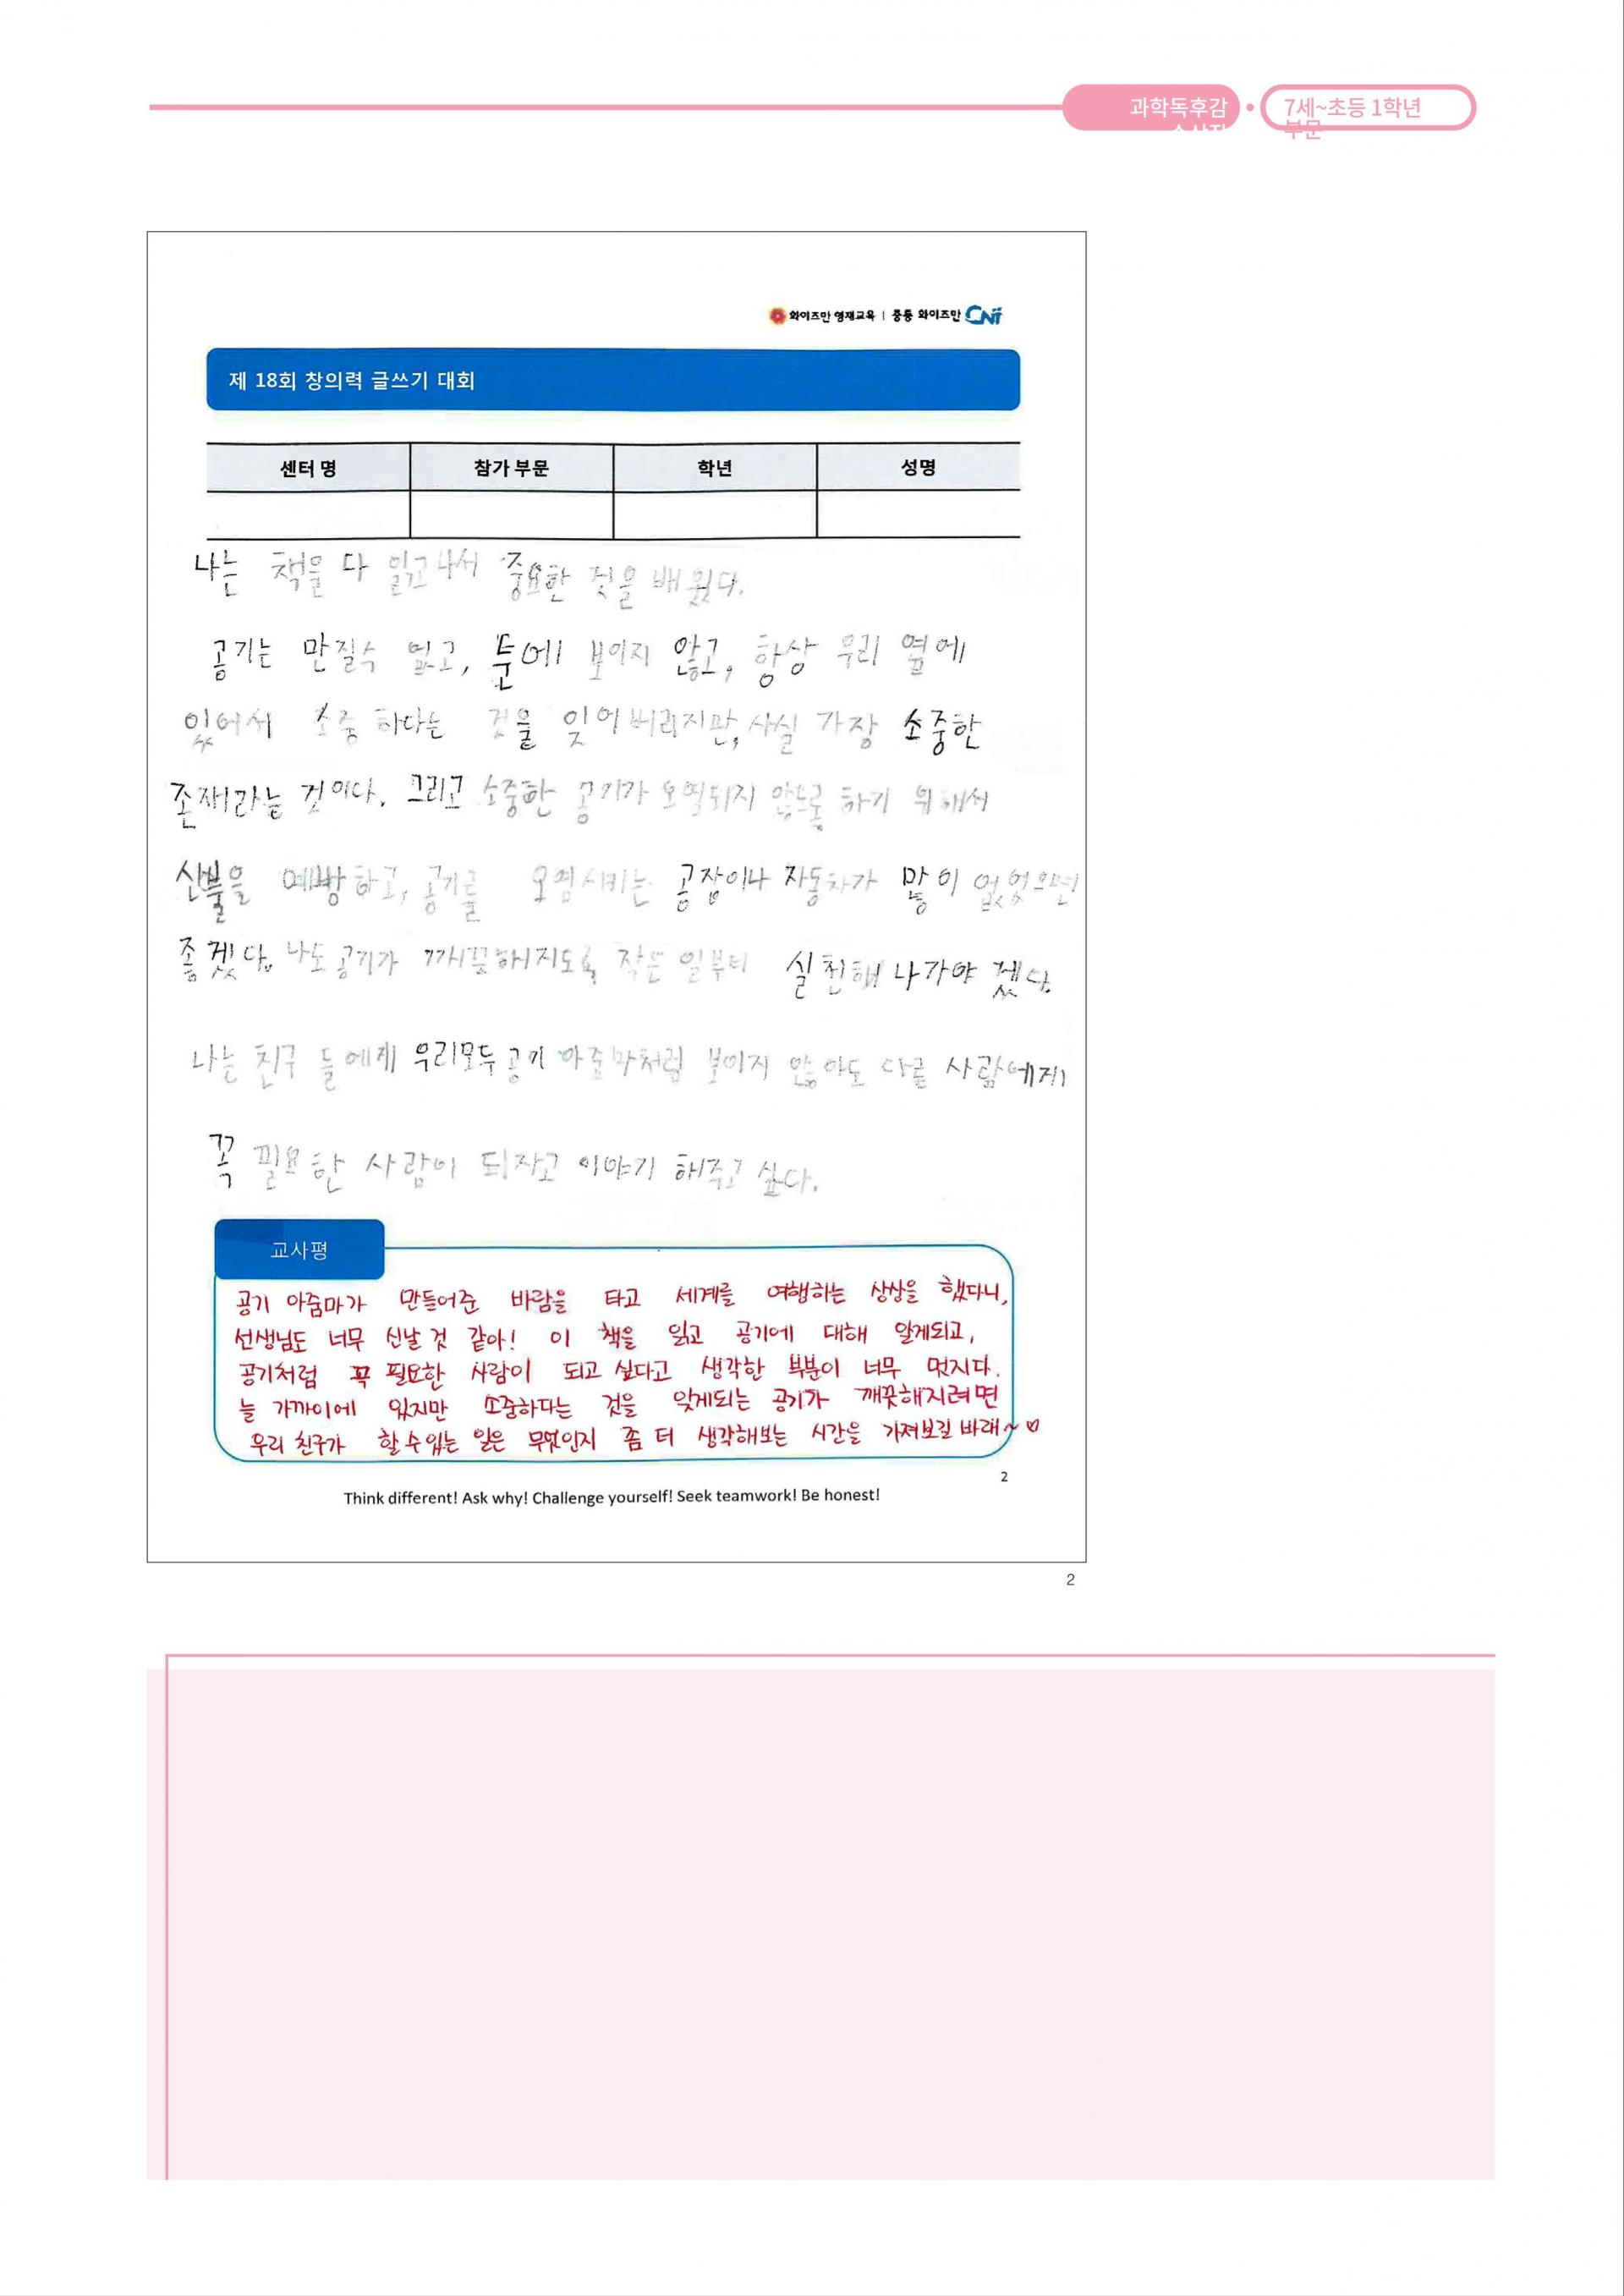 과학독후감
수상작
7세~초등 1학년
부문
와이즈만 영재교육 | 중등 와이즈만 CNi
제 18회 창의력 글쓰기 대회
센터 명 참가 부문 학년 성명
나는 책을 다 읽고나서 중요한 것을 배웠다.
공기는 만질수 없고, 눈에 보이지 않고, 항상 우리 옆에
있어서 소중 하다는 것을 잊어버리지만, 사실 가장 소중한
존재라는 것이다. 그리고 소중한 공기가 오염되지 않도록 하기 위해서
산불을 예방하고, 공기를 오염시키는 공장이나 자동차가 많이 없었으면
좋겠다. 나도 공기가 깨끗해지도록 작은 일부터 실천해 나가야 겠다.
나는 친구 들에게 우리모두 공기 아줌마처럼 보이지 않아도 다른 사람에게
꼭 필요한 사람이 되자고 이야기 해주고 싶다.
교사평
공기 아줌마가 만들어준 바람을 타고 세계를 여행하는 상상을 했다니,
선생님도 너무 신날 것 같아! 이 책을 읽고 공기에 대해 알게되고,
공기처럼 꼭 필요한 사람이 되고 싶다고 생각한 부분이 너무 멋지다.
늘 가까이에 있지만 소중하다는 것을 잊게되는 공기가 깨끗해지려면
우리 친구가 할 수 있는 일은 무엇인지 좀 더 생각해보는 시간을 가져보길 바래~♡
2
Think different! Ask why! Challenge yourself! Seek teamwork! Be honest!
2